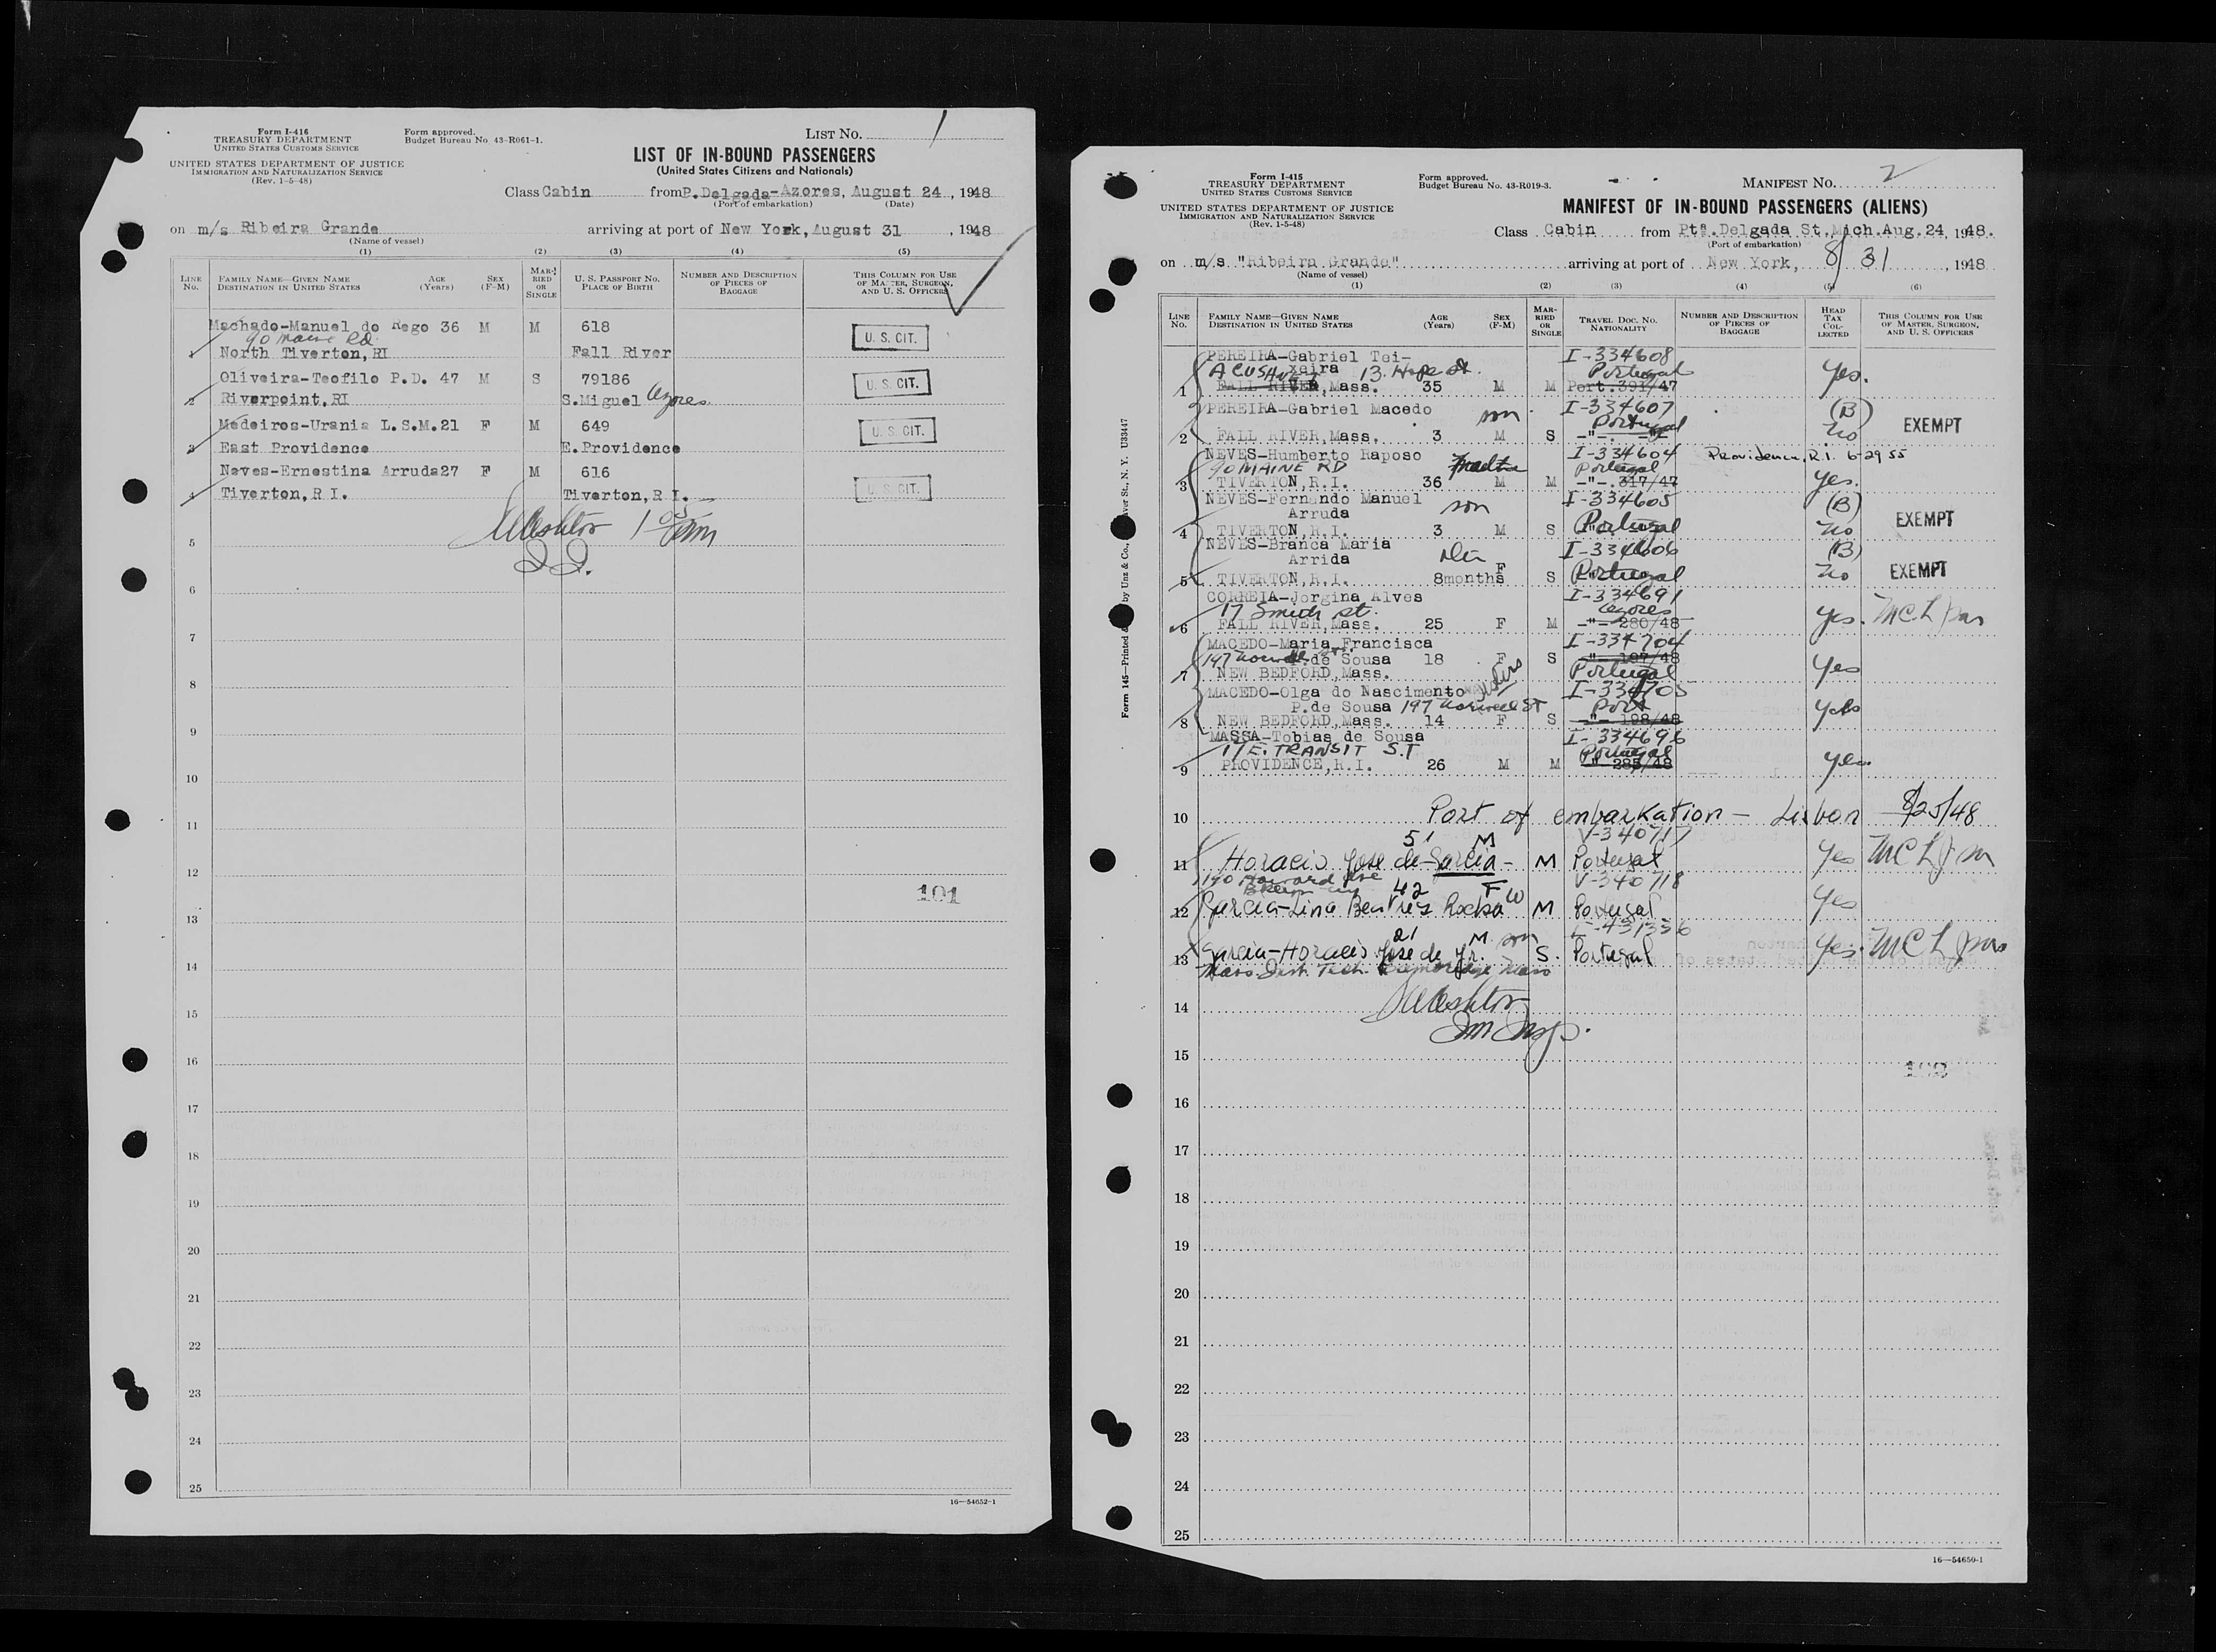 Form I-416
TREASURY DEPARTMENT
UNITED STATES CUSTOMS SERVICE
UNITED STATES DEPARTMENT OF JUSTICE
IMMIGRATION AND NATURALIZATION SERVICE
(Rev. 1-5-48)
Form approved.
Budget Bureau No 43-R061-1.
LIST NO. 1
LIST OF IN-BOUND PASSENGERS
(United States Citizens and Nationals)
Class Cabin from P. Delgada-Azores, August 24, 1948
(Port of embarkation) (Date)
on m/s Ribeira Grande arriving at port of New York, August 31, 1948
(Name of vessel)
(1) (2) (3) (4) (5)
LINE No. FAMILY NAME—GIVEN NAME DESTINATION IN UNITED STATES AGE (Years) SEX (F-M) MARRIED OR SINGLE U. S. PASSPORT NO. PLACE OF BIRTH NUMBER AND DESCRIPTION OF PIECES OF BAGGAGE THIS COLUMN FOR USE OF MASTER, SURGEON, AND U. S. OFFICERS
Machado-Manuel do Rego 36 M M 618 U. S. CIT.
90 Maine Rd.
1 North Tiverton,RI Fall River
Oliveira-Teofilo P.D. 47 M S 79186 U. S. CIT.
2 Riverpoint,RI S.Miguel Azores
Medeiros-Urania L.S.M.21 F M 649 U. S. CIT.
3 East Providence E.Providence
Neves-Ernestina Arruda27 F M 616 U. S. CIT.
4 Tiverton,R I. Tiverton,R I.
5
6
7
8
9
10
11
12
101
13
14
15
16
17
18
19
20
21
22
23
24
25
16—54652-1
Form I-415
TREASURY DEPARTMENT
UNITED STATES CUSTOMS SERVICE
UNITED STATES DEPARTMENT OF JUSTICE
IMMIGRATION AND NATURALIZATION SERVICE
(Rev. 1-5-48)
Form approved.
Budget Bureau No. 43-R019-3.
MANIFEST NO. 2
MANIFEST OF IN-BOUND PASSENGERS (ALIENS)
Class Cabin from Ptª.Delgada St.Mich.Aug.24, 1948.
(Port of embarkation)
on m/s "Ribeira Grande" arriving at port of New York, 8/31, 1948
(Name of vessel)
(1) (2) (3) (4) (5) (6)
LINE No. FAMILY NAME—GIVEN NAME DESTINATION IN UNITED STATES AGE (Years) SEX (F-M) MARRIED OR SINGLE TRAVEL DOC. NO. NATIONALITY NUMBER AND DESCRIPTION OF PIECES OF BAGGAGE HEAD TAX COLLECTED THIS COLUMN FOR USE OF MASTER, SURGEON, AND U. S. OFFICERS
Form 145—Printed by Unz & Co., N. Y. U33447
PEREIRA-Gabriel Tei- I-334608
xeira Portugal yes.
ACUSHNET 13. Hope St.
1 FALL RIVER, Mass. 35 M M Port. 391/47
PEREIRA-Gabriel Macedo son I-334607 (B) EXEMPT
Portugal
2 FALL RIVER,Mass. 3 M S -"- no
NEVES-Humberto Raposo I-334604 Providence, R.I. 6-29 55
90 MAINE RD Portugal
3 TIVERTON,R.I. 36 M M -"-.317/47 yes.
NEVES-Fernando Manuel son I-334605 (B) EXEMPT
Arruda
4 TIVERTON,R.I. 3 M S Portugal no
NEVES-Branca Maria I-334606 (B) EXEMPT
Arrida
5 TIVERTON,R.I. 8months F S Portugal no
CORREIA-Jorgina Alves I-334691
17 Smith St. Azores
6 FALL RIVER,Mass. 25 F M -"- 280/48 yes.
MACEDO-Maria Francisca I-334704
197 P.de Sousa 18 F S -"- 197/48 yes
7 NEW BEDFORD,Mass. Portugal
MACEDO-Olga do Nascimento sisters I-334705
P.de Sousa 197 ST Port yes
8 NEW BEDFORD,Mass. 14 F S -"- 198/48
MASSA-Tobias de Sousa I-334696
17 E. TRANSIT S.T Portugal
9 PROVIDENCE,R.I. 26 M M " 285/48 yes
10 Port of embarkation — Lisbon 8/25/48
51 M V-340717
11 Horacio José de Garcia - M Portugal yes
140 Howard Ave
42 F W V-340718
12 Garcia-Lina Beatriz Rocha M Portugal yes
21 M son
13 Garcia-Horacio José de Jr. S. Portugal yes
Mass. Inst. Tech. Cambridge Mass
14
15
16
17
18
19
20
21
22
23
24
25
16—54650-1